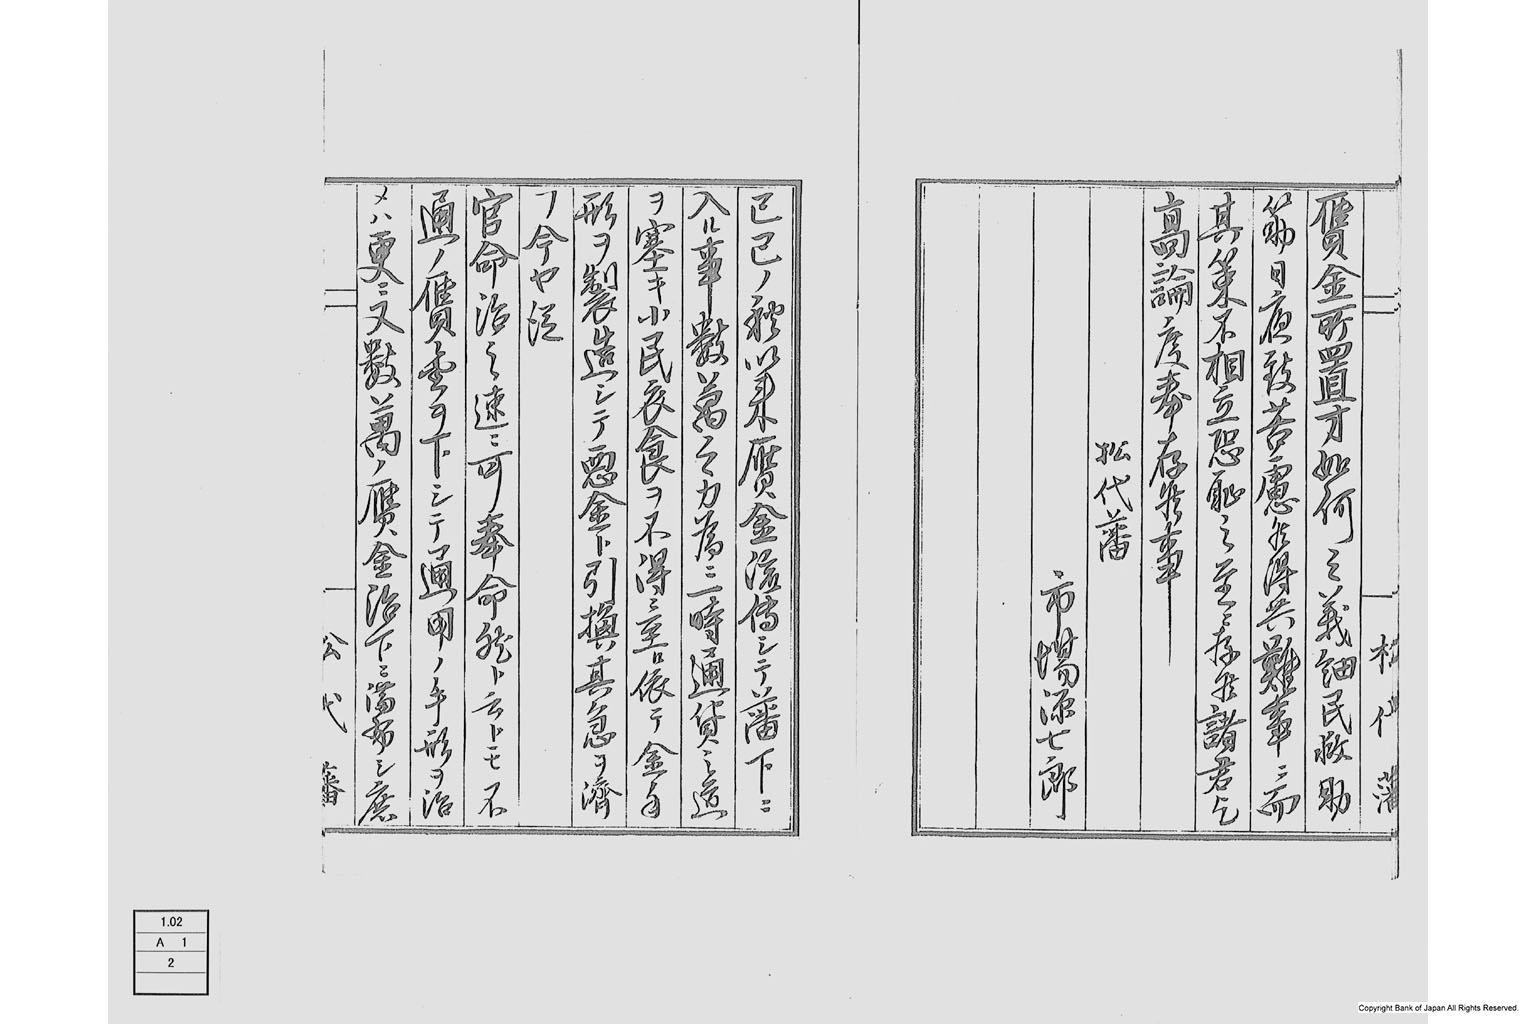 松代藩
贋金所置才如何之義細民救助
筋日夜致苦慮候得共難事ニ而
其策不相立恐恥之至ニ存候諸君乞
高論度奉存候事
松代藩
市場源七郎
已已ノ秋以来贋金流傳シテ藩下ニ
入ル事數萬之力為ニ一時通貨之道
ヲ塞キ小民衣食ヲ不得ニ至ル依テ金手
形ヲ製造シテ悪金ト引換其急ヲ濟
フ今や従
官命治之速ニ可奉命然ト云ドモ不
通ノ贋金ヲ下シテ通用ノ手形ヲ治
メハ更ニ又數萬ノ贋金治下ニ満布シ庶
松代藩
1.02
A 1
2
Copyright Bank of Japan All Rights Reserved.